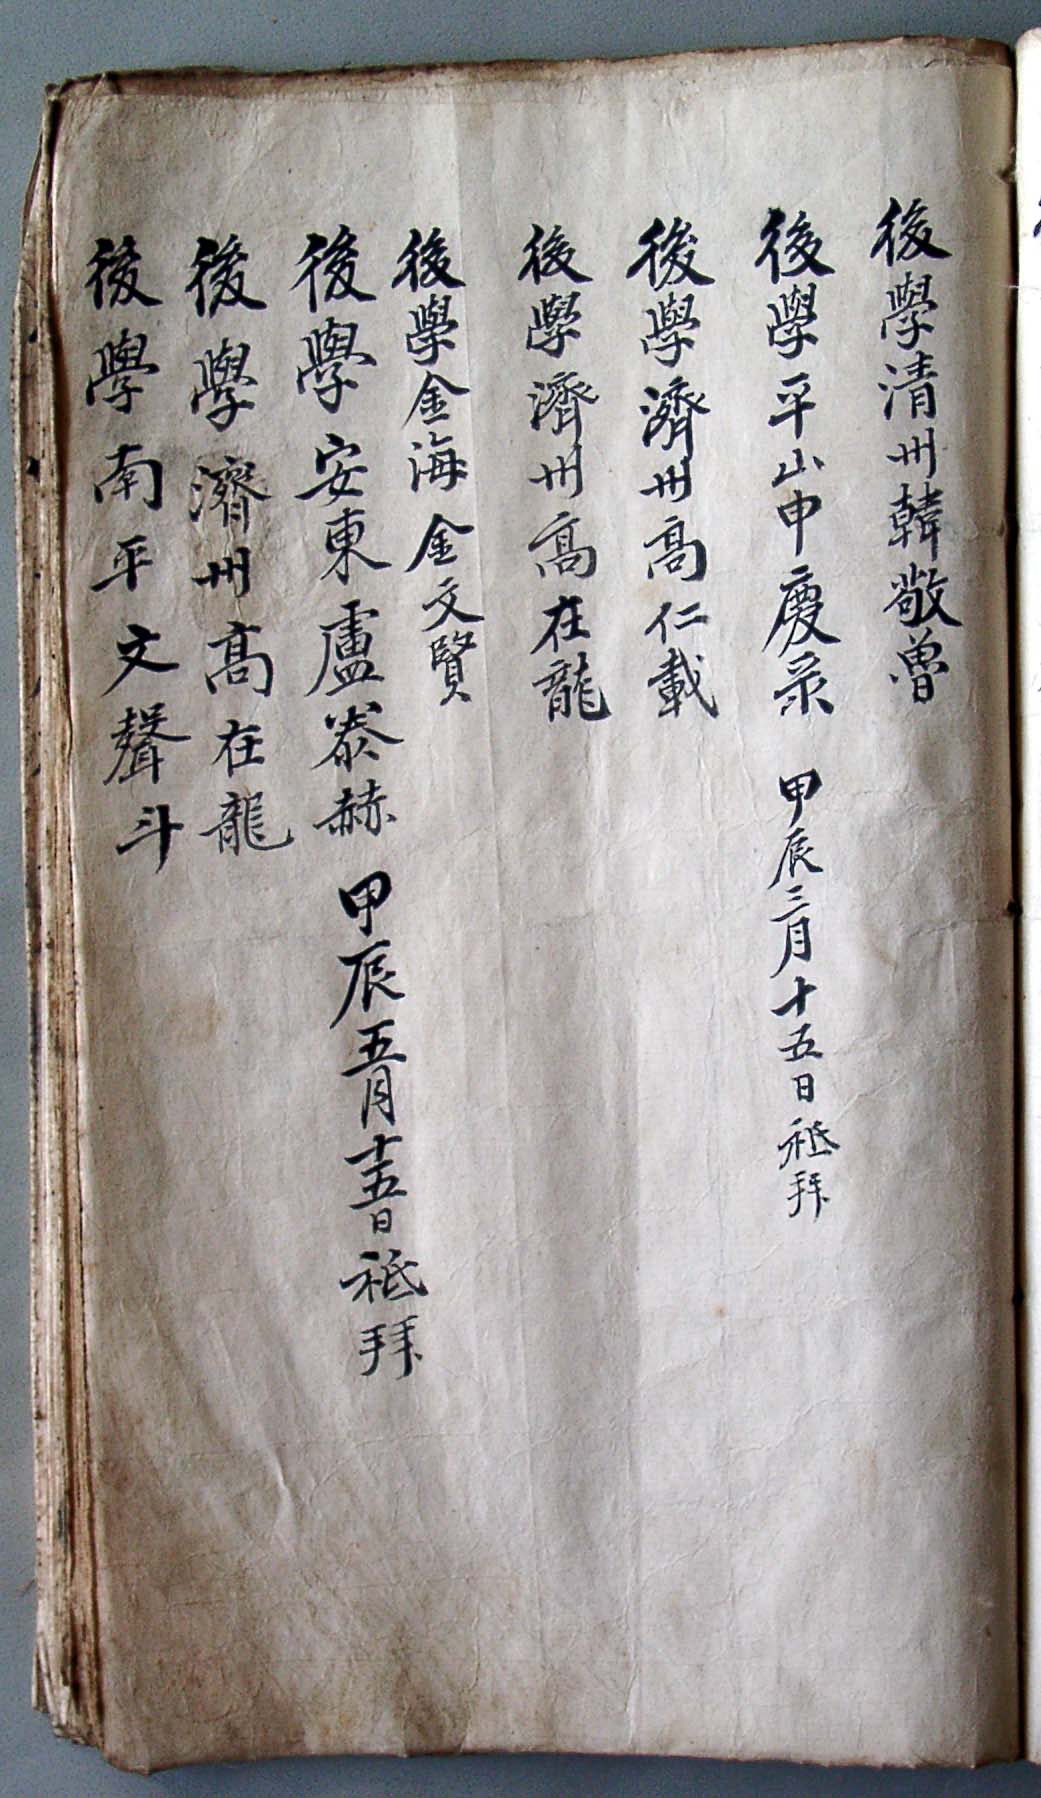 後學清州韓敬曾
後學平山申慶 甲辰三月十五日祗拜
後學濟州高仁載
後學濟州高在龍
後學金海金文賢
後學安東盧泰赫 甲辰五月十五日祗拜
後學濟州高在龍
後學南平文聲斗